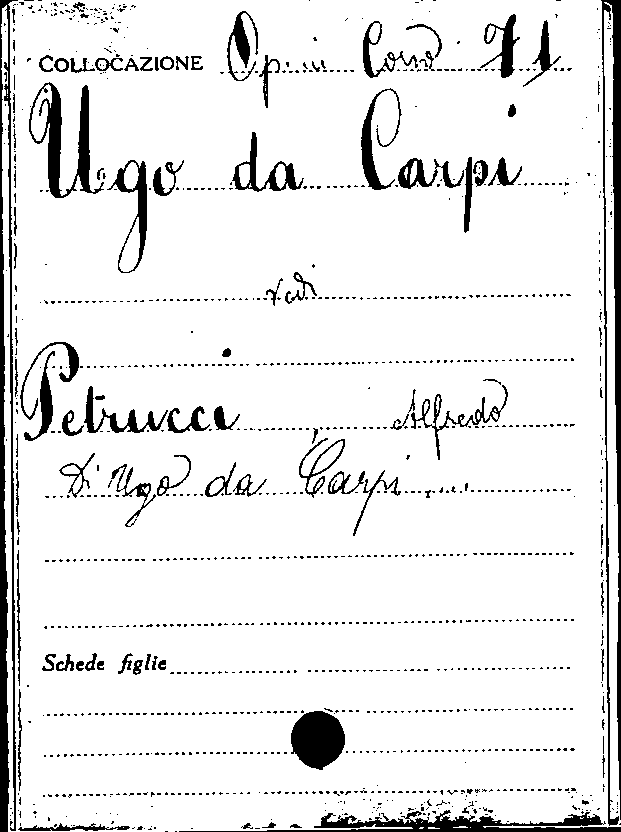 COLLOCAZIONE Op. Corso 71
Ugo da Carpi
vedi
Petrucci, Alfredo
Di Ugo da Carpi....
Schede figlie